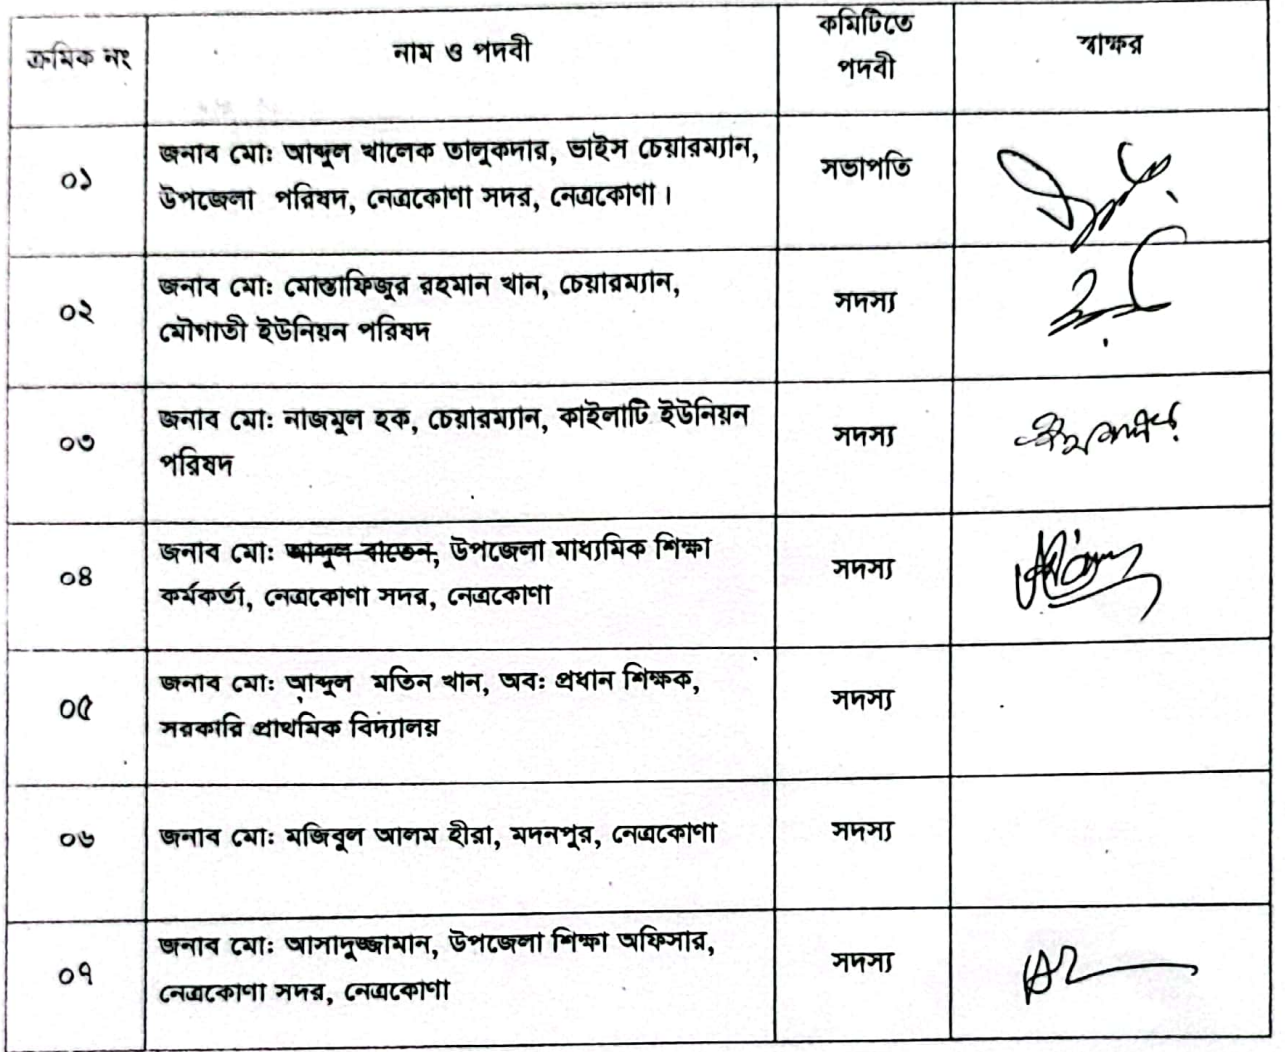 ক্রমিক নং	নাম ও পদবী	কমিটিতে পদবী	স্বাক্ষর
০১	জনাব মো: আব্দুল খালেক তালুকদার, ভাইস চেয়ারম্যান,	সভাপতি
উপজেলা পরিষদ, নেত্রকোণা সদর, নেত্রকোণা।
০২	জনাব মো: মোস্তাফিজুর রহমান খান, চেয়ারম্যান,	সদস্য
মৌগাতী ইউনিয়ন পরিষদ
০৩	জনাব মো: নাজমুল হক, চেয়ারম্যান, কাইলাটি ইউনিয়ন	সদস্য
পরিষদ
০৪	জনাব মো: আব্দুল বাতেন, উপজেলা মাধ্যমিক শিক্ষা	সদস্য
কর্মকর্তা, নেত্রকোণা সদর, নেত্রকোণা
০৫	জনাব মো: আব্দুল মতিন খান, অব: প্রধান শিক্ষক,	সদস্য
সরকারি প্রাথমিক বিদ্যালয়
০৬	জনাব মো: মজিবুল আলম হীরা, মদনপুর, নেত্রকোণা	সদস্য
০৭	জনাব মো: আসাদুজ্জামান, উপজেলা শিক্ষা অফিসার,	সদস্য
নেত্রকোণা সদর, নেত্রকোণা